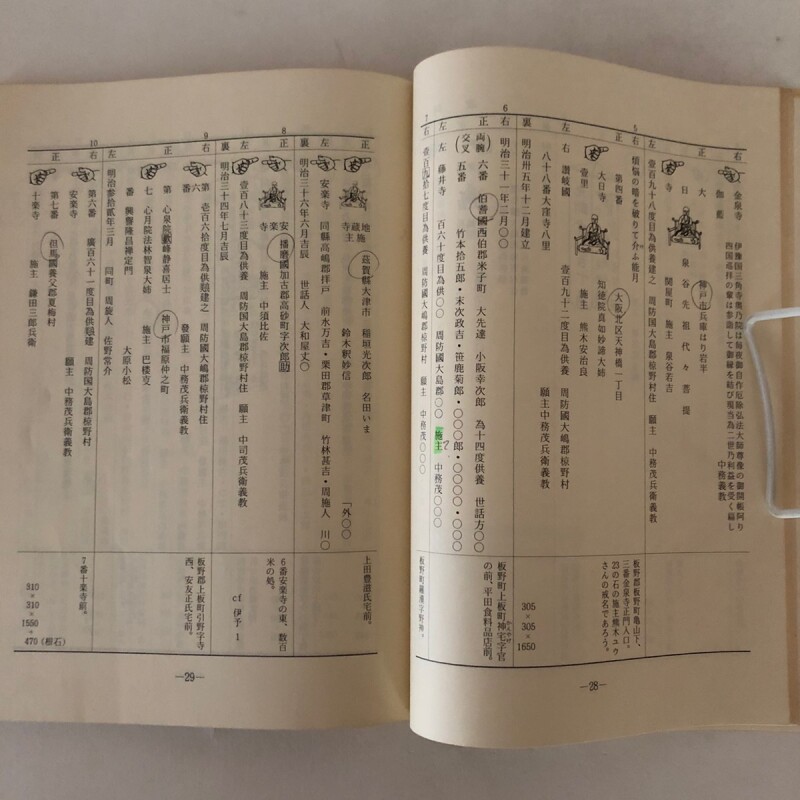 金泉寺
伽藍
伊豫国三角寺奥乃院は毎夜御自作厄除弘法大師尊像の御開帳阿り
四国巡拝の輩は参詣して御縁を結び現当為二世乃利益を受く扁し
中務義教
正
大
日
寺
神戸市兵庫はり岩半
泉谷先祖代々菩提
関屋町 施主 泉谷若吉
右
左
壹百九十八度目為供養建之 周防國大嶋郡椋野村住 願主 中務茂兵衛義教
煩悩の暗を破りて介ふ能月
5
正
第四番
大日寺
壹里
大阪北区天神橋一丁目
知逹院良如妙諦大姉
施主 熊木安治良
右
讃岐國 壹百九十二度目為供養 周防國大嶋郡椋野村
左
八十八番大窪寺八里 願主中務茂兵衛義教
裏
明治卅五年十二月建立
板野郡板野町亀山下、
三番金泉寺正門入口。
23の石の施主熊木ユウ
さんの戒名であろう。
305
×
305
×
1650
6
右
明治三十一年二月〇〇
正
両腕 六番 伯耆國西伯郡米子町 大先達 小阪幸次郎 為十四度供養 世話方〇〇
(交叉) 五番 竹本拾五郎・末次政吉・笹鹿菊郎・〇〇〇郎・〇〇〇〇・〇〇〇
左
左 藤井寺 百六十度目為供〇〇 周防國大島郡〇〇 施主? 中務茂〇〇
板野町上板町神宅字宮
の前、平田食料品店前。
7
右
壹百九拾七度目為供養 周防國大島郡椋野村 願主 中務茂〇〇〇
—28—
正
地蔵寺
施主
滋賀縣大津市 稲垣光次郎 名田いま
鈴木釈妙信 「外〇〇
左
安楽寺 同縣高嶋郡拝戸 前水万吉・栗田郡草津町 竹林甚吉・周施人 川〇
裏
明治三十六年六月吉辰 世話人 大和屋丈〇
上田豊滋氏宅前。
8
正
安楽寺
播磨國加古郡高砂町字次郎助
施主 中須比佐
左
壹百八十三度目為供養 周防國大島郡椋野村住 願主 中司茂兵衛義教
裏
明治三十四年七月吉辰
6番安楽寺の東、数百
米の処。
cf 伊予1
9
右
第六番 壱百六拾度目為供養建之 周防國大嶋郡椋野村住
發願主 中務茂兵衛義教
正
第七番
心泉院眞峰静喜居士 神戸市福原仲之町
心月院法林智泉大姉 施主 巴楼支
興譽隆昌禅定門 大原小松
左
明治参拾貳年三月 同町 周旋人 佐野常介
板野郡上板町引野字寺
西、安友正氏宅前。
10
右
第六番 廣百六十一度目為供養建之 周防国大島郡椋野村
安楽寺 願主 中務茂兵衛義教
正
第七番 但馬國養父郡夏梅村
十楽寺 施主 鎌田三郎兵衛
7番十楽寺前。
310
×
310
×
1550
+
470(根石)
—29—